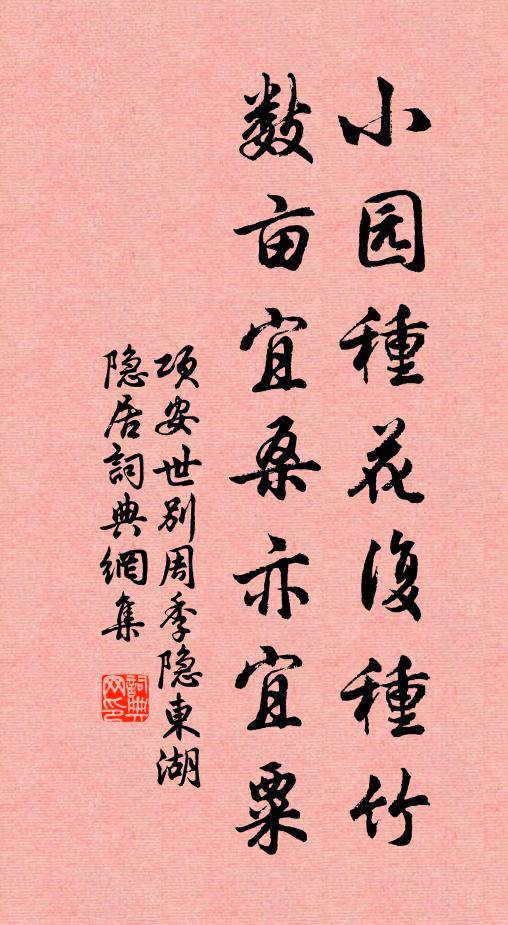 小园種花復種竹
数亩宜桑亦宜粟
项安世别周季隐東湖
隐居詞典網集
詞典网印